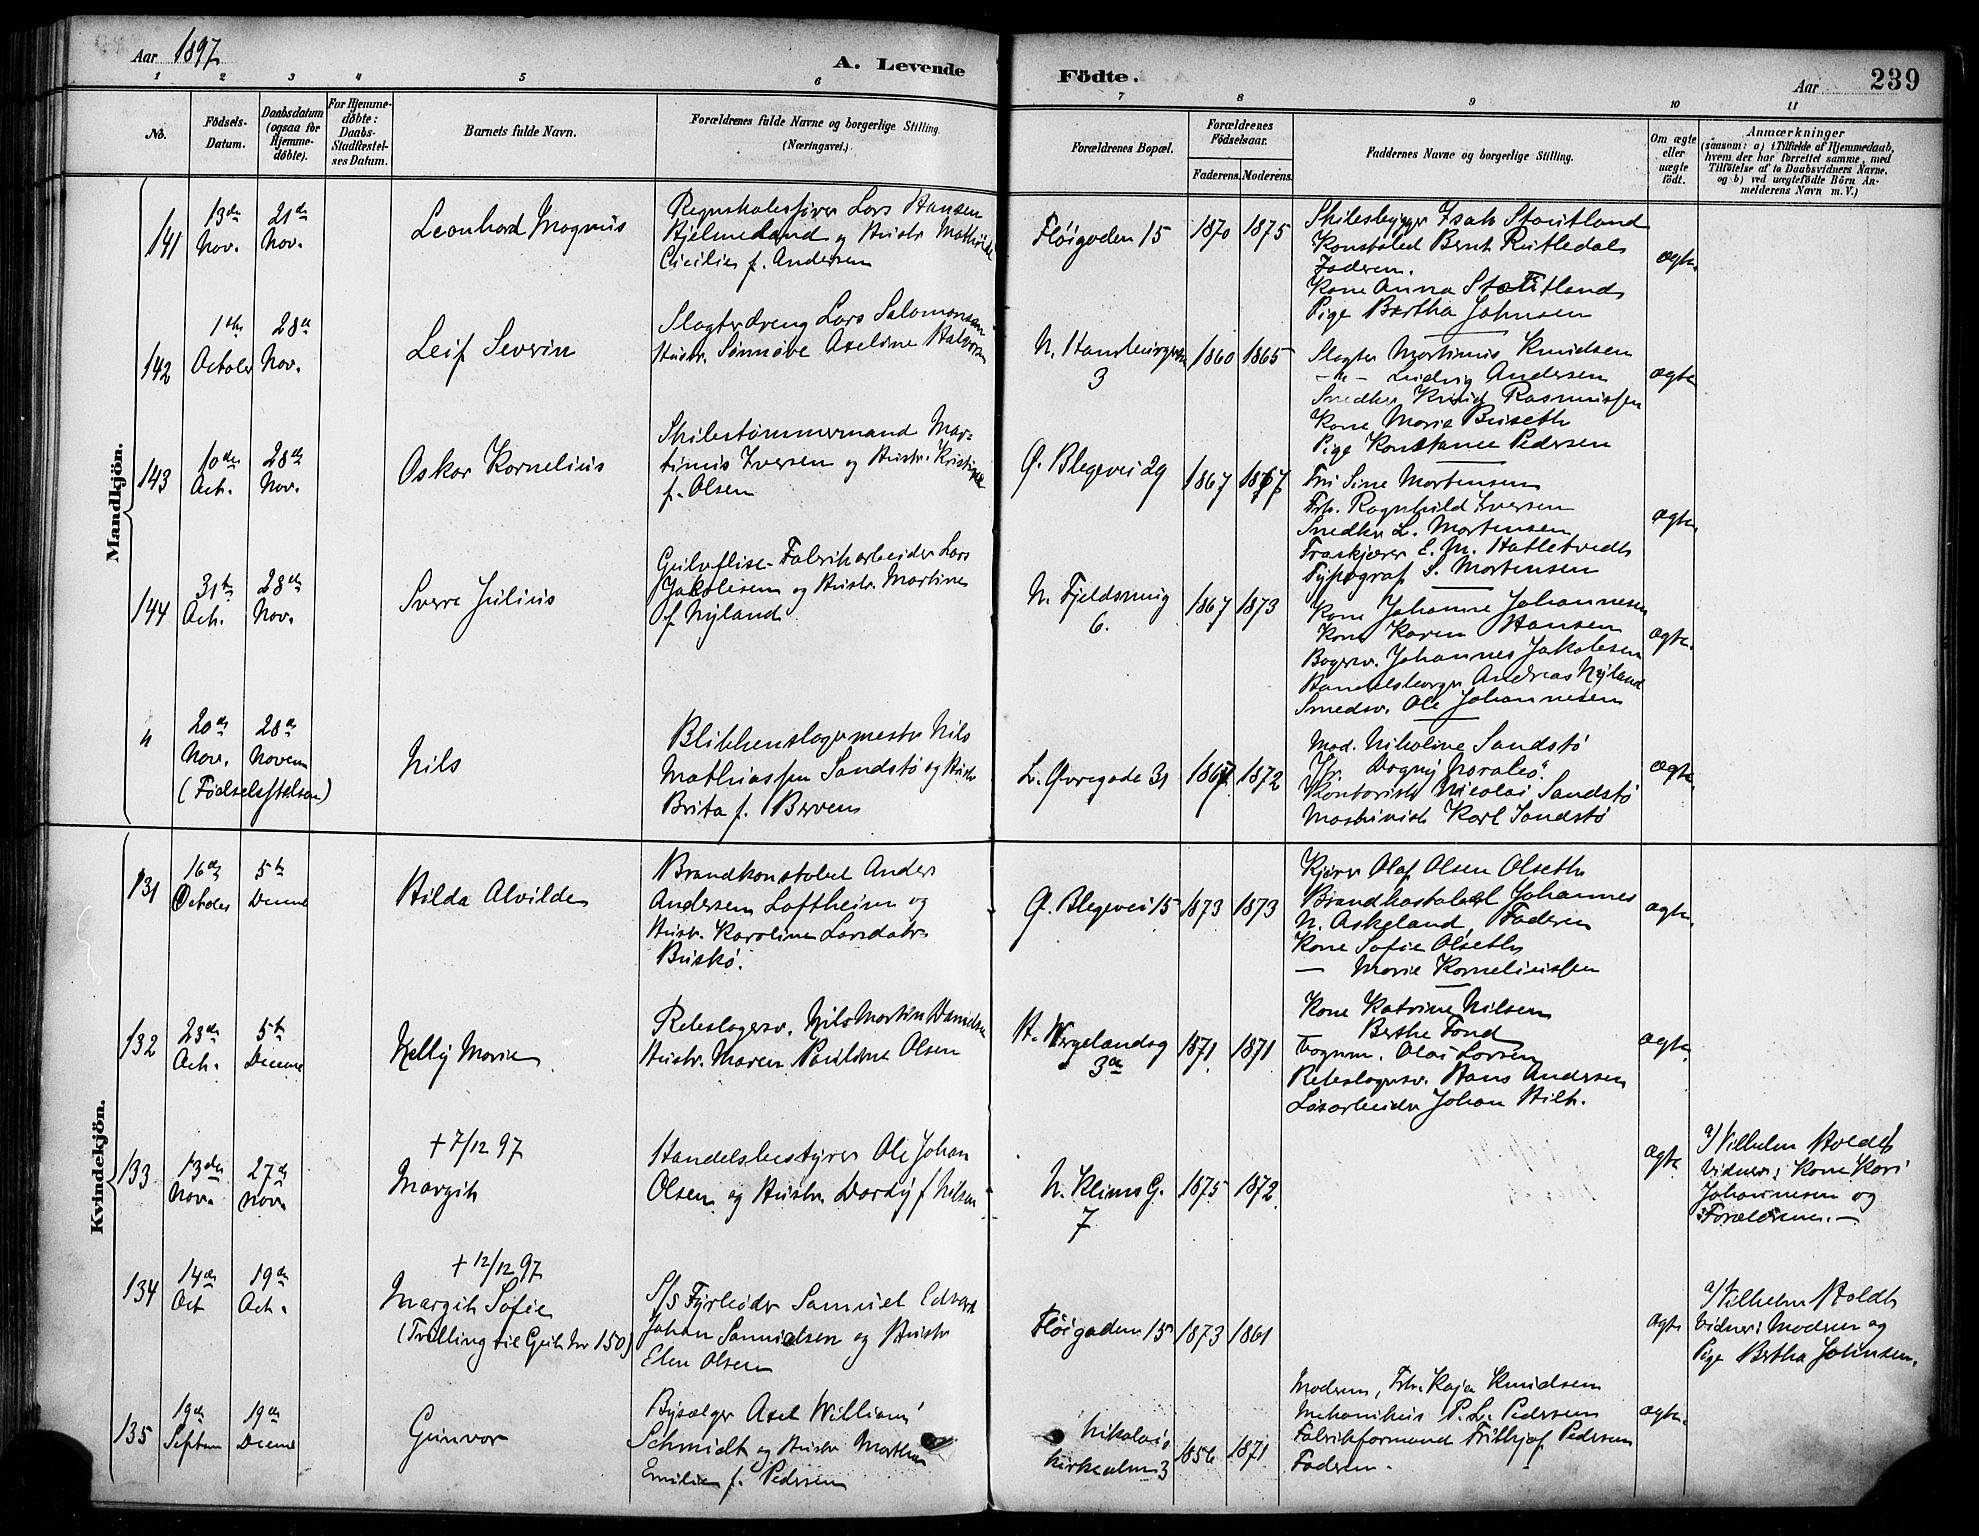 Aar 1897
A. Levende
Födte.
Aar
239
1 2 3 4 5 6 7 8 9 10 11
No.
Födsels-
Datum.
Daabsdatum
(ogsaa for
Hjemme-
døbte).
For Hjemme-
døbte:
Daabs-
Stadfæstel-
ses Datum.
Barnets fulde Navn.
Forældrenes fulde Navne og borgerlige Stilling.
(Næringsvei.)
Forældrenes Bopæl.
Forældrenes
Födselsaar.
Faderens. Moderens.
Faddernes Navne og borgerlige Stilling.
Om ægte
eller
uægte
födt.
Anmærkninger
(saasom: a) i Tilfælde af Hjemmedaab,
hvem der har forrettet samme, med
Tilföielse af to Daabsvidners Navne.
og b) ved uægtefödte Börn An-
melderens Navn m. V.)
Mandkjön.
141
13de
Nov.
21de
Nov.
Leonhard Magnus
Regnskabsfører Lars Hansen
Hjelmeland og Hustr. Mathilde
Cicilie f. Andersen
Fløigaden 15
1870 1875
Skibsbygger Isak Stoutland
Konstabel Bernt Rutledal
Faderen.
Kone Anna Stoutland
Pige Bertha Johnsen
ægte
142
1ste
October
28de
Nov.
Leif Severin
Slagterdreng Lars Salomonsen
Hustr. Sønnøve Axeline Halvorsen
N. Hamburgersm.
3
1860 1865
Slagter Martinus Knudsen
—"— Ludvig Andersen
Snedker Knud Rasmussen
Kone Marie Buseth
Pige Konstance Pedersen
ægte
143
10de
Oct.
28de
Nov.
Oskar Kornelius
Skibstømmermand Mar-
tinus Iversen og Hustr. Kristine
f. Olsen
Ø. Blegevei 29
1867 1867
Fru Sine Mortensen
Frk. Ragnhild Iversen
Snedker L. Mortensen
E. M. Hatletvedt
Typograf S. Mortensen
ægte
144
31te
Oct.
28de
Nov.
Sverre Julius
Gulvflise-Fabrikarbeider Lars
Jakobsen og Hustr. Martine
f. Nyland
N. Fjeldsmug
6.
1867 1873
Kone Johanne Johannesen
Kone Karen Hansen
Bagersv. Johannes Jakobsen
Handelsborger Andreas Nyland
Smedsv. Ole Johannesen
ægte.
"
20de
Nov.
28de
Novem
(Fødselsstiftelsen)
Nils
Blikkenslagermester Nils
Mathiassen Sandstø og Hustr
Brita f. Berven
L. Øvregade 31
1867 1872
Mad. Nikoline Sandstø
Fr. Dagny
Kontorist Nicolai Sandstø
Maskinist Karl Sandstø
ægte
Kvindekjön.
131
16de
October
5te
Decme
Hilda Alvilde
Brandkonstabel Anders
Andersen Loftheim og
Hustr. Karoline Larsdatr.
Buskø.
Ø. Blegevei 15
1873 1873
Kjører Olaf Olsen Olseth
Brandkonstabel Johannes
N. Askeland, Faderen
Kone Sofie Olseth
— Marie Korneliussen
ægte.
132
23de
Oct.
5te
Decme
Nelly Marie
Rebslagersv. Nils Martin Danielsen
Hustr. Maren Pauline Olsen
H. Wergelandsg
3a
1871 1871
Kone Katrine Nilsen
Berthe Fond
Vognm. Olai Larsen
Rebslagersv. Hans Andersen
Løsarbeider Johan Hilt.
ægte
133
13de
Nov.
27de
Nov.
+ 7/12 97
Margith
Handelsbestyrer Ole Johan
Olsen og Hustr Dordy f. Nilsen
N. Klims G.
7
1875 1872
ægte
a/ Vilhelm Holdt
Vidner: Kone Kari
Johannesen og
Forældrene.—
134
14de
Oct
19de
Oct.
+ 12/12 97
Margith Sofie
(Tvilling til Gutt No 150)
S/s Fyrbøder Samuel Edvard
Johan Samuelsen og Hustr
Elen Olsen
Fløigaden 15
1873 1861
ægte
a/ Vilhelm Holdt
Vidner: Moderen og
Pige Bertha Johnsen.
135
19de
Septem
19de
Decme
Gunvor
Bysælger Axel William
Schmidt og Hustr. Marthe
Emilie f. Pedersen
Nikolai
kirkealm 3
1856 1871
Moderen, Frk. Kaja Knudsen
Mekanikus P. L. Pedersen
Fabrikformand Frithjof Pedersen
Faderen.
ægte.